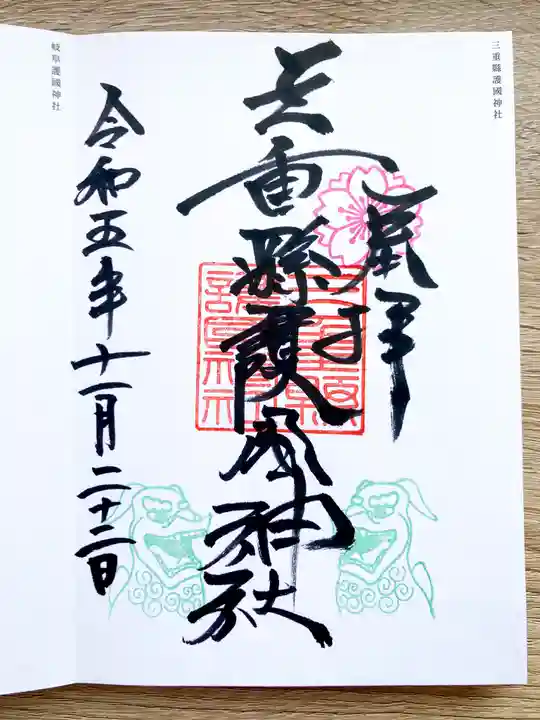 三重縣護國神社
奉拝
三重縣護國神社
令和五年十一月二十二日
岐阜護國神社